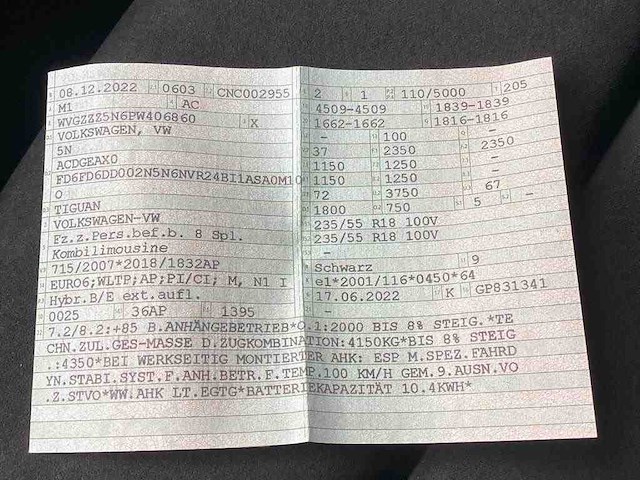 08.12.2022 0603 CNC002955
M1 AC
WVGZZZ5N6PW406860 X
VOLKSWAGEN, VW
5N
ACDGEAX0
FD6FD6DD002N5N6NVR24BI1ASA0M10
0
TIGUAN
VOLKSWAGEN-VW
Fz.z.Pers.bef.b. 8 Spl.
Kombilimousine
715/2007*2018/1832AP
EURO6;WLTP;AP;PI/CI; M, N1 I
Hybr.B/E ext.aufl.
0025 36AP 1395
2 1 110/5000 205
4509-4509 1839-1839
1662-1662 1816-1816
- 100 -
37 2350 2350
1150 1250
1150 1250 -
72 3750 67
1800 750 5 -
235/55 R18 100V
235/55 R18 100V
-
Schwarz 9
e1*2001/116*0450*64
17.06.2022 K GP831341
-
7.2/8.2:+85 B.ANHÄNGEBETRIEB*O.1:2000 BIS 8% STEIG.*TE
CHN.ZUL.GES-MASSE D.ZUGKOMBINATION:4150KG*BIS 8% STEIG
.:4350*BEI WERKSEITIG MONTIERTER AHK: ESP M.SPEZ.FAHRD
YN.STABI.SYST.F.ANH.BETR.F.TEMP.100 KM/H GEM.9.AUSN.VO
.Z.STVO*WW.AHK LT.EGTG*BATTERIEKAPAZITÄT 10.4KWH*